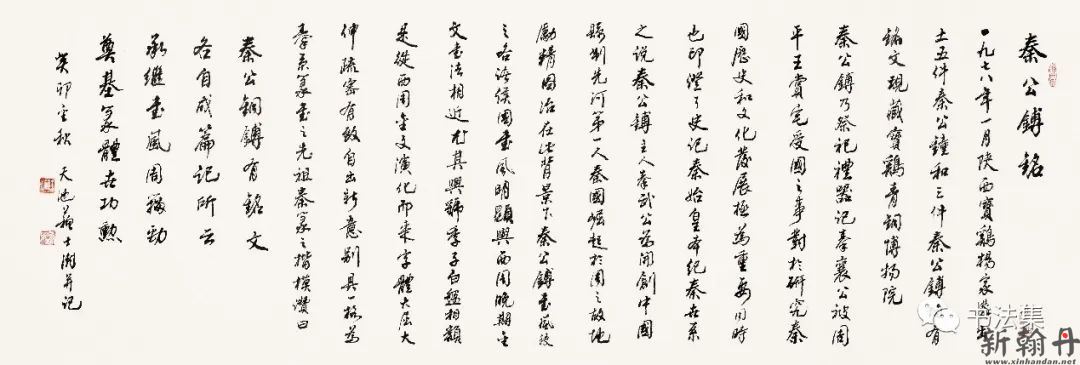 秦公鎛銘
一九七八年一月陝西寶鷄楊家溝出
土五件秦公鐘和三件秦公鎛
有
銘文現藏寶鷄青銅博物院
秦公鎛乃祭祀禮器記秦襄公被周
平王賞宅受國之事對於研究秦
國歷史和文化發展極為重要同時
也印證了史記秦始皇本紀秦世系
之說秦公鎛主人秦武公為開創中國
縣制先河第一人秦國崛起於周之故地
勵精圖治在此背景下秦公鎛書風較
之各諸侯國書風明顯與西周晚期金
文書法相近尤其與虢季子白盤相類
是從西周金文演化而來字體大屈大
伸疏密有致自出新意別具一格為
秦系篆書之先祖秦篆之楷模讚曰
秦公銅鎛有銘文
各自成篇記所云
承繼書風周韻勁
奠基篆體世功勳
癸卯金秋 天池 士澍并記
书法集
新翰丹
www.xinhandan.net